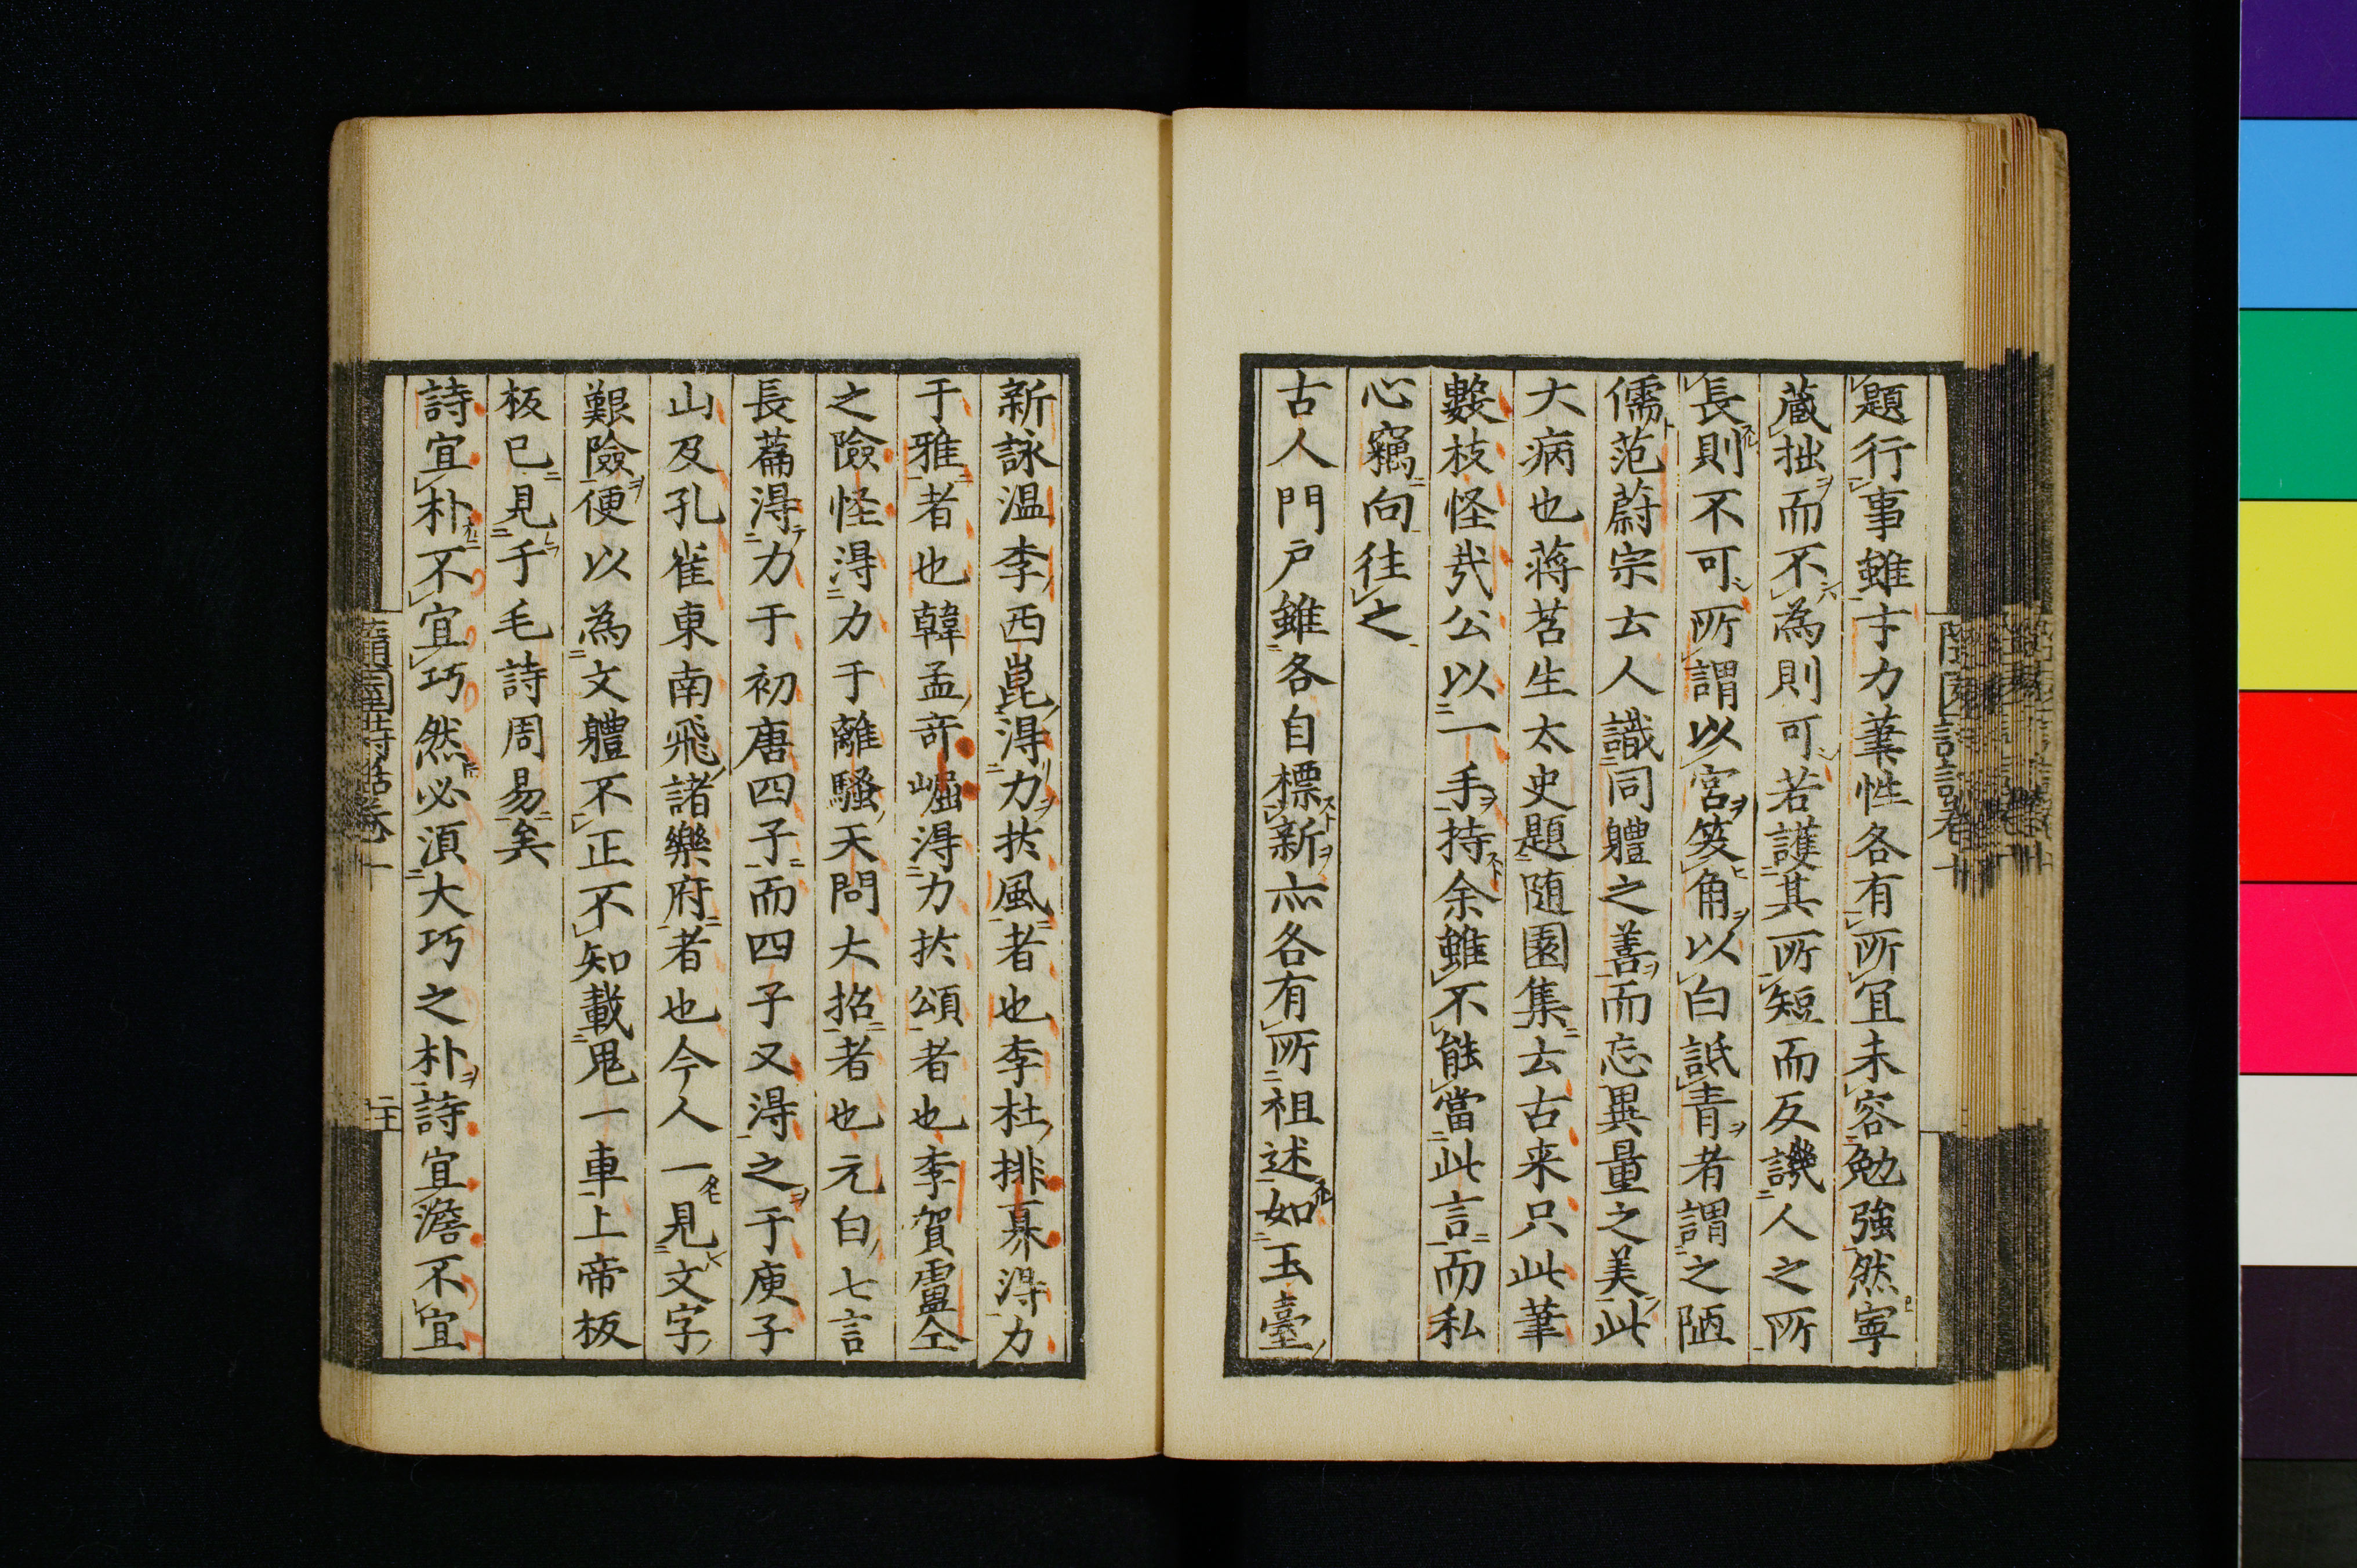 題行事雖才力筆性各有所宜未容勉強然寧
藏拙而不為則可若護其所短而反譏人之所
長則不可所謂以宮笑角以白詆青者謂之陋
儒范蔚宗云人識同體之善而忘異量之美此
大病也蔣苕生太史題随園集云古来只此筆
數枝怪哉公以一手持余雖不能當此言而私
心竊向往之
古人門戸雖各自標新亦各有所祖述如玉臺
新詠溫李西崑得力扵風者也李杜排奡得力
于雅者也韓孟奇崛得力扵頌者也李賀盧仝
之險怪得力于離騷天問大招者也元白七言
長篇得力于初唐四子而四子又得之于庾子
山及孔雀東南飛諸樂府者也今人一見文字
艱險便以為文體不正不知載鬼一車上帝板
板已見于毛詩周易矣
詩宜朴不宜巧然必須大巧之朴詩宜澹不宜
隨園詩話卷一